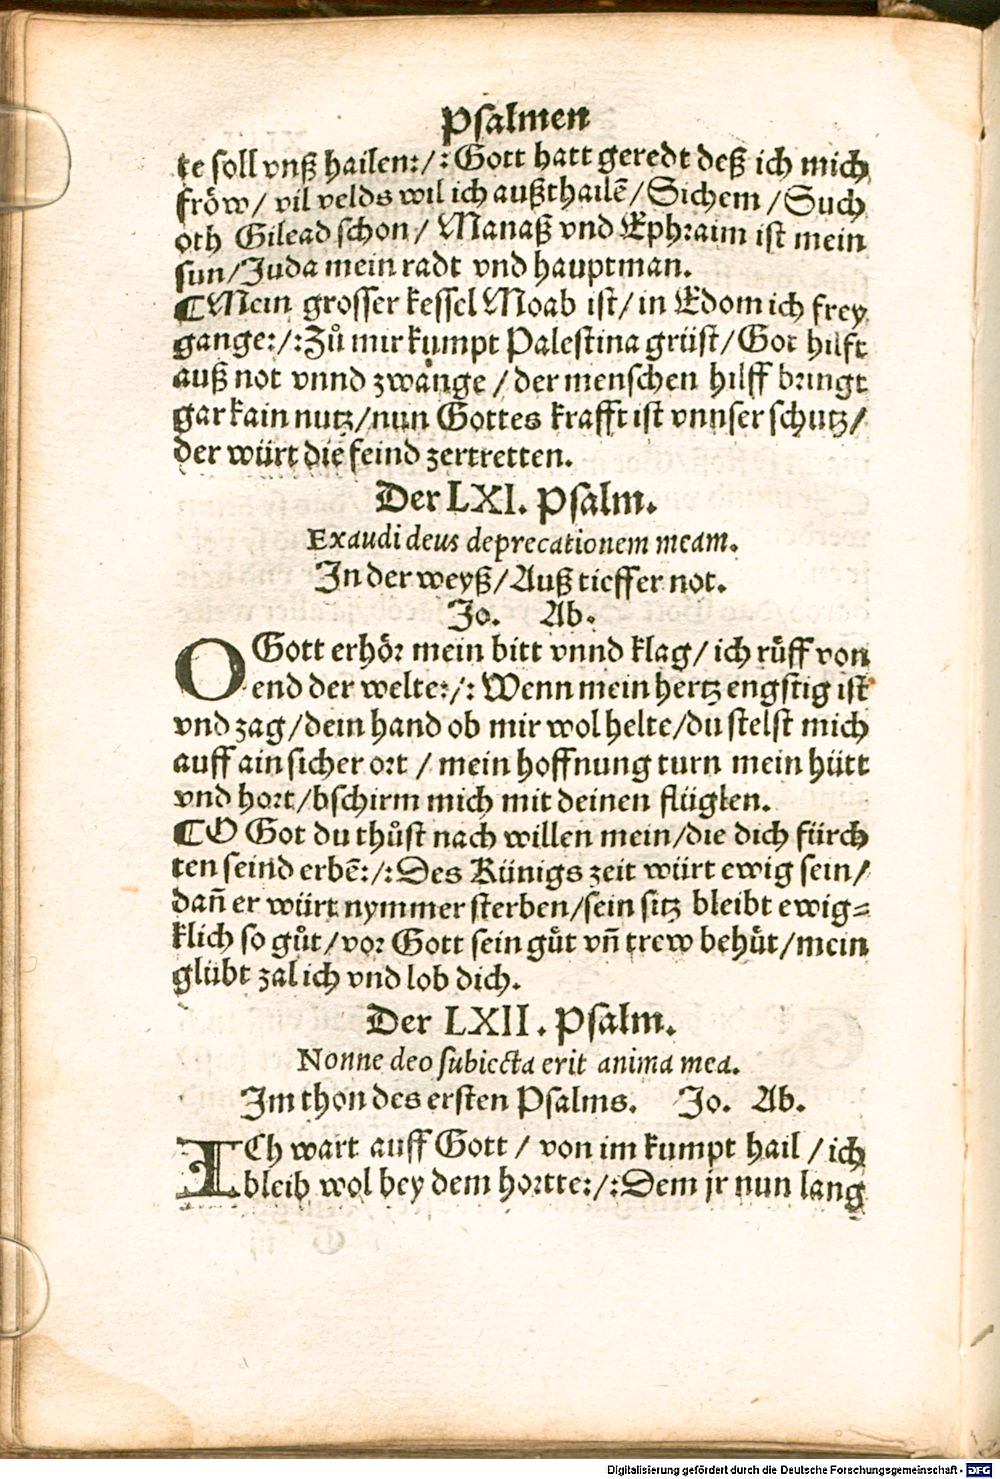 Psalmen
te soll vnß hailen:/: Gott hatt geredt deß ich mich
fröw / vil velds wil ich außthailẽ / Sichem / Such
oth Gilead schon / Manaß vnd Ephraim ist mein
sun / Juda mein radt vnd hauptman.
¶ Mein grosser kessel Moab ist / in Edom ich frey
gange:/: Zů mir kumpt Palestina grüst / Got hilft
auß not vnnd zwange / der menschen hilff bringt
gar kain nutz / nun Gottes krafft ist vnnser schutz /
der würt die feind zertretten.
Der LXI. Psalm.
Exaudi deus deprecationem meam.
In der weyß / Auß tieffer not.
Jo. Ab.
O Gott erhör mein bitt vnnd klag / ich růff von
end der welte:/: Wenn mein hertz engstig ist
vnd zag / dein hand ob mir wol helte / du stelst mich
auff ain sicher ort / mein hoffnung turn mein hütt
vnd hort / bschirm mich mit deinen flüglen.
¶ O Got du thůst nach willen mein / die dich fürch
ten seind erbẽ:/: Des Künigs zeit würt ewig sein /
dañ er würt nymmer sterben / sein sitz bleibt ewig=
klich so gůt / vor Gott sein gůt vñ trew behůt / mein
glübt zal ich vnd lob dich.
Der LXII. Psalm.
Nonne deo subiecta erit anima mea.
Im thon des ersten Psalms. Jo. Ab.
ICh wart auff Gott / von im kumpt hail / ich
bleib wol bey dem hortte:/: Dem jr nun lang
Digitalisierung gefördert durch die Deutsche Forschungsgemeinschaft - DFG